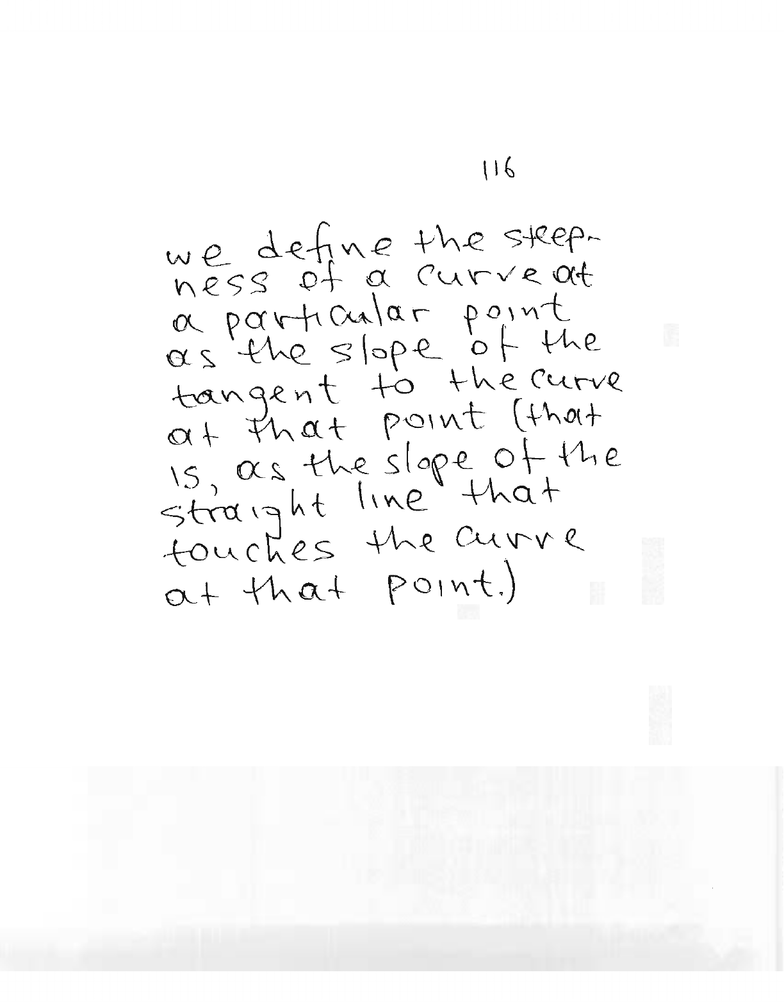 116
we define the steep-
ness of a curve at
a particular point
as the slope of the
tangent to the curve
at that point (that
is, as the slope of the
straight line that
touches the curve
at that point.)